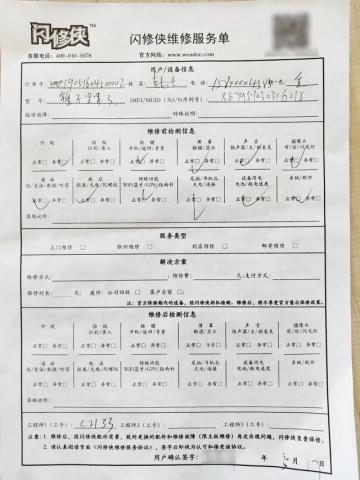 闪修侠™
闪修侠维修服务单
客服电话：400-010-5678
官方网站：www.weadoc.com
用户/设备信息
订单号： 姓名： 电话：
型号： IMEI/MEID（或S/N序列号）
报修故障： 特殊说明：
维修前检测信息
外观 指纹 按键 屏幕 声音 摄像头
识别/录入 开机/返回/音量 触摸/显示 扬声器/主/副麦克 前/后/闪光灯
正常□ 异常□ 正常□ 异常□ 正常□ 异常□ 正常□ 异常□ 正常□ 异常□ 正常□ 异常□
通话 感应 特殊功能 尾插/耳机孔 设备用电 系统/软件
送/受话/数据/听筒 距离/光感/陀螺仪 WiFi蓝牙/GPS/指南针 充电/连接 电池/耗电速度
正常□ 异常□ 正常□ 异常□ 正常□ 异常□ 正常□ 异常□ 正常□ 异常□ 正常□ 异常□
其他说明：
服务类型
上门维修 □ 取回维修 □ 到店维修 □ 邮寄维修 □
解决方案
维修方式： ；维修费： 元;支付方式：
保修时长： 天; 废件：公司回收 □ 客户自留 □;
注：官方保修期内的设备，经闪修侠拆机检测、维修后，将不享受官方售后保修政策。
维修后检测信息
外观 指纹 按键 屏幕 声音 摄像头
识别/录入 开机/返回/音量 触摸/显示 扬声器/主/副麦克 前/后/闪光灯
正常□ 异常□ 正常□ 异常□ 正常□ 异常□ 正常□ 异常□ 正常□ 异常□ 正常□ 异常□
通话 感应 特殊功能 尾插/耳机孔 设备用电 系统/软件
送/受话/数据/听筒 距离/光感/陀螺仪 WiFi蓝牙/GPS/指南针 充电/连接 电池/耗电速度
正常□ 异常□ 正常□ 异常□ 正常□ 异常□ 正常□ 异常□ 正常□ 异常□ 正常□ 异常□
其他说明：
工程师1（工号）：C2133 工程师2（工号）： 工程师3（工号）：
注意：1. 维修后，因闪修侠配件质量，致所更换的配件和维修故障（限主板维修）再次出现问题，闪修侠负责保修。
2. 请认真阅读背面《闪修侠维修服务协议》，签字后即视为认可和接受该协议。
用户确认签字： 年 月 日